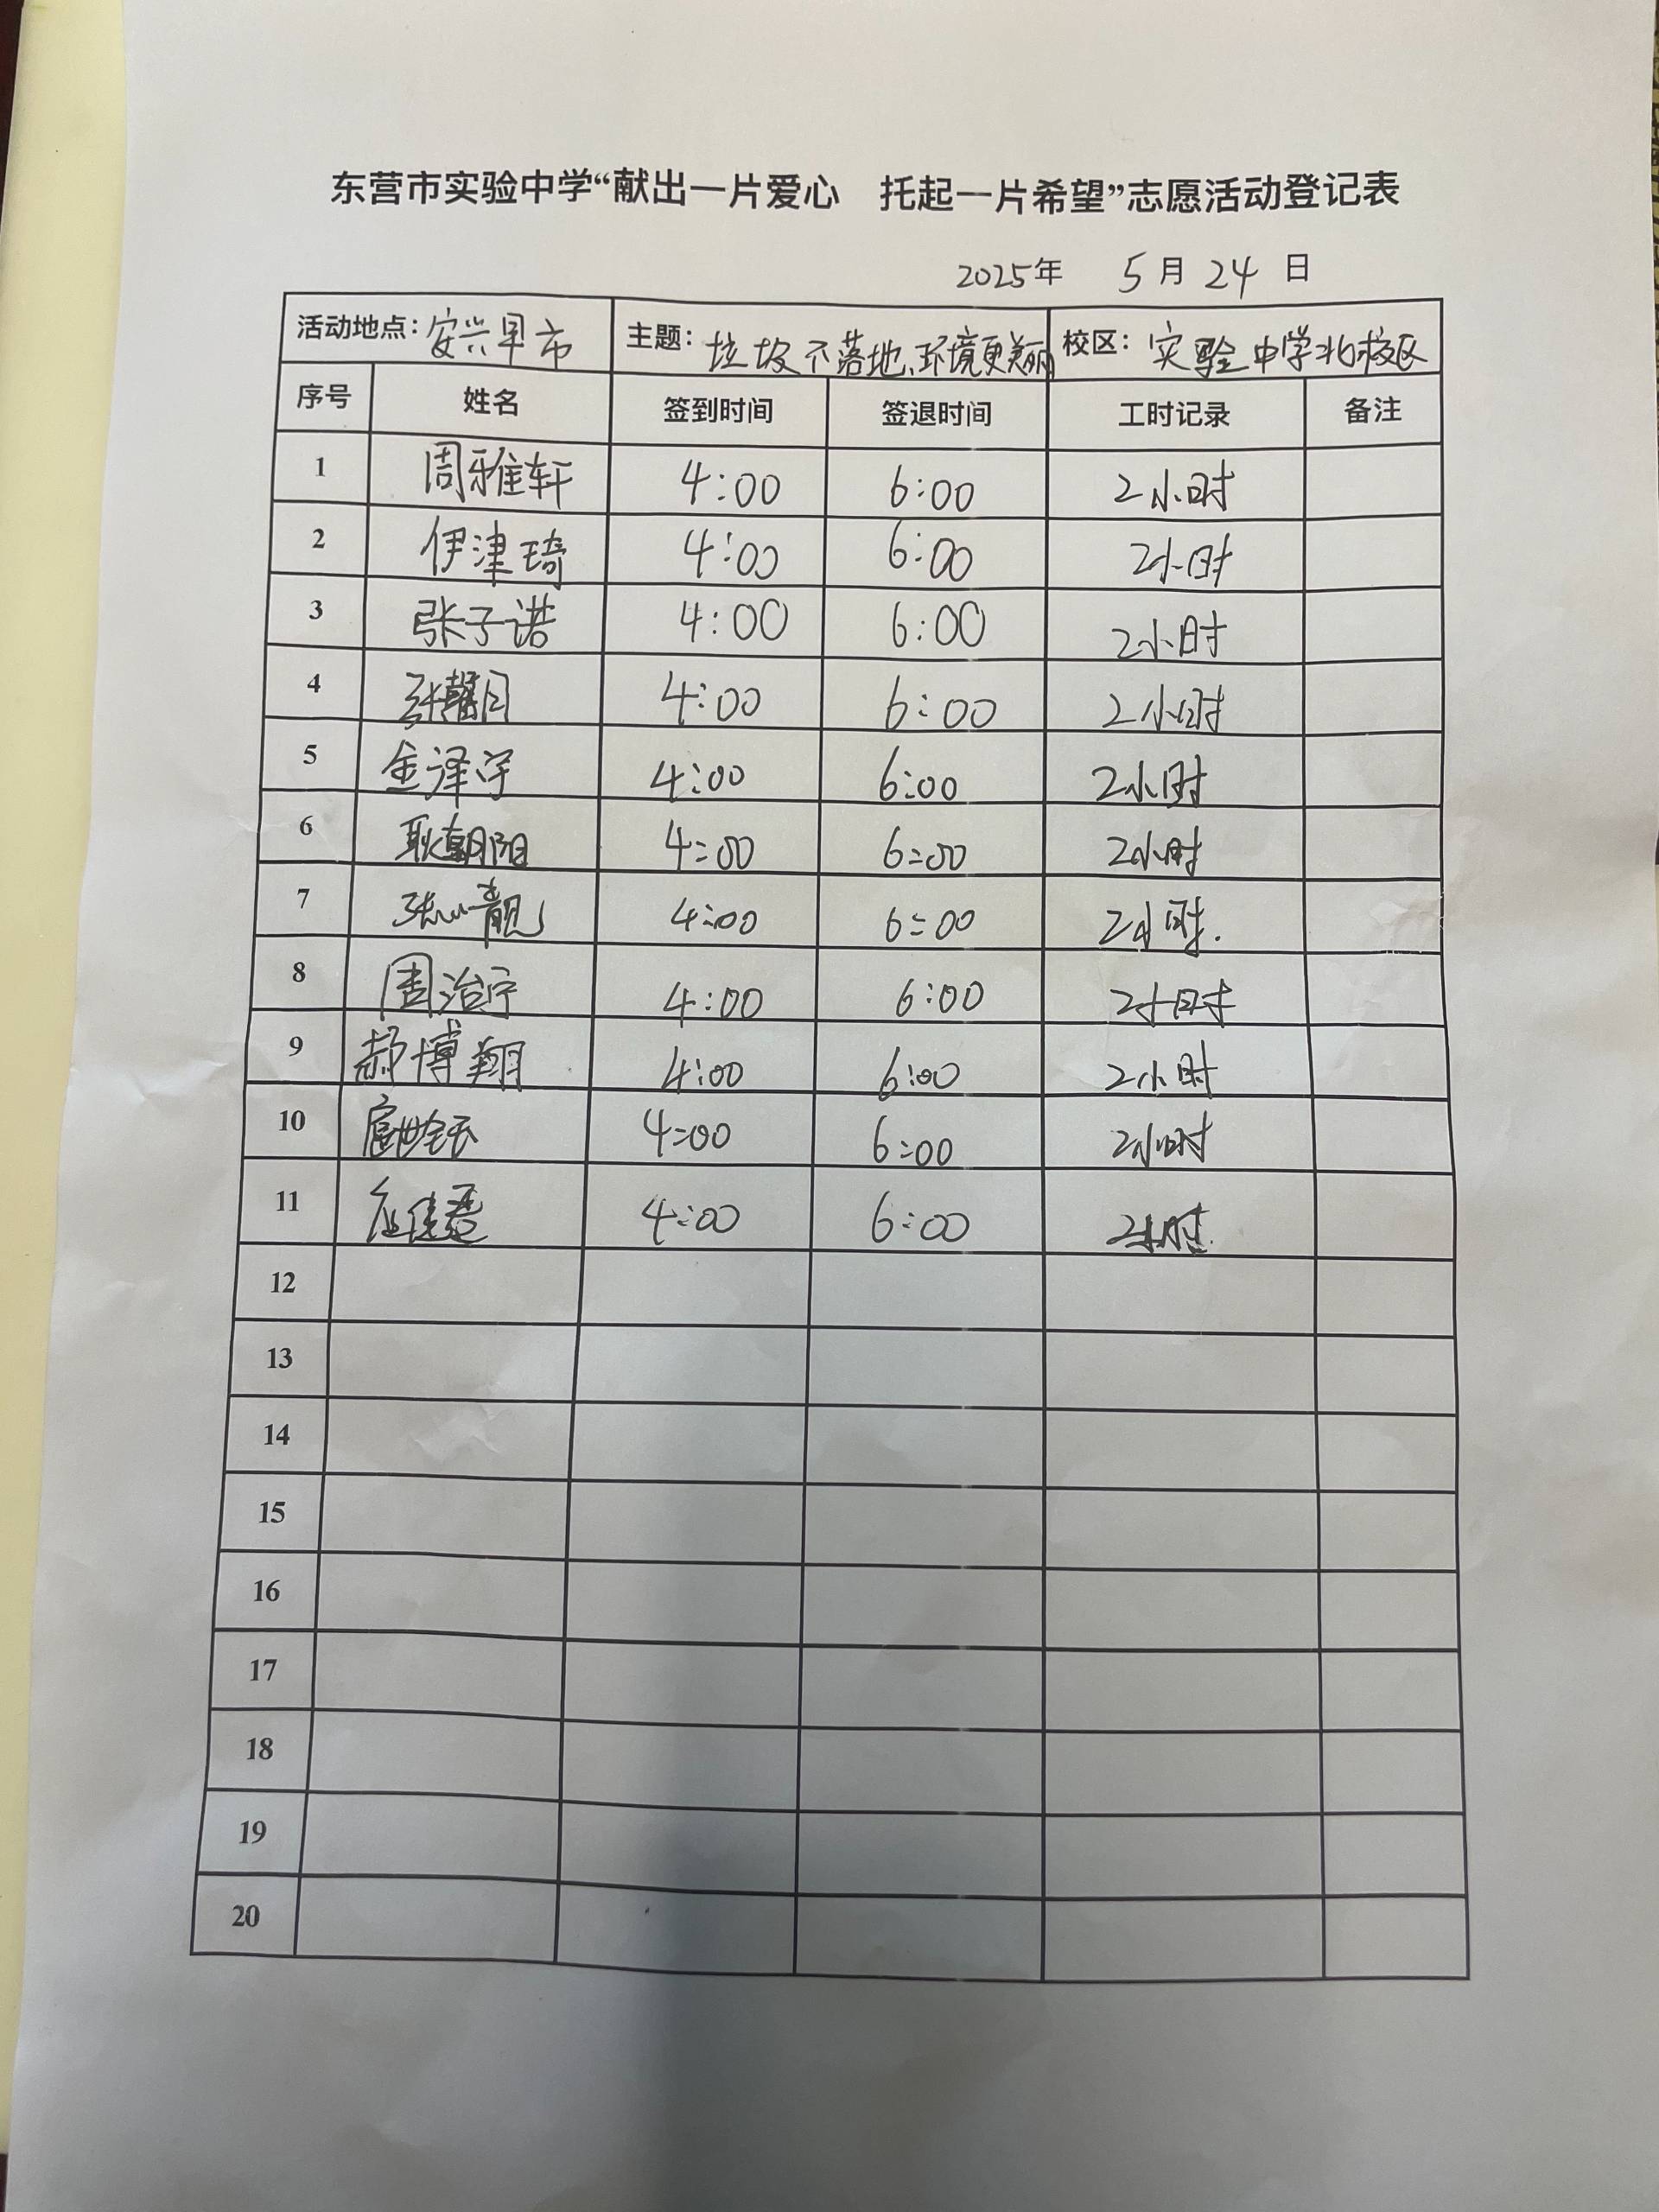 东营市实验中学“献出一片爱心 托起一片希望”志愿活动登记表
2025年 5月24日
活动地点：安兴早市 主题：垃圾不落地、环境更美丽 校区：实验中学北校区
序号 姓名 签到时间 签退时间 工时记录 备注
1 周雅轩 4:00 6:00 2小时
2 伊津琦 4:00 6:00 2小时
3 张子诺 4:00 6:00 2小时
4 张馨月 4:00 6:00 2小时
5 金泽宇 4:00 6:00 2小时
6 耿朝阳 4:00 6:00 2小时
7 4:00 6:00 2小时.
8 周治宇 4:00 6:00 2小时
9 郝博翔 4:00 6:00 2小时
10 4:00 6:00 2小时
11 4:00 6:00 2小时
12
13
14
15
16
17
18
19
20